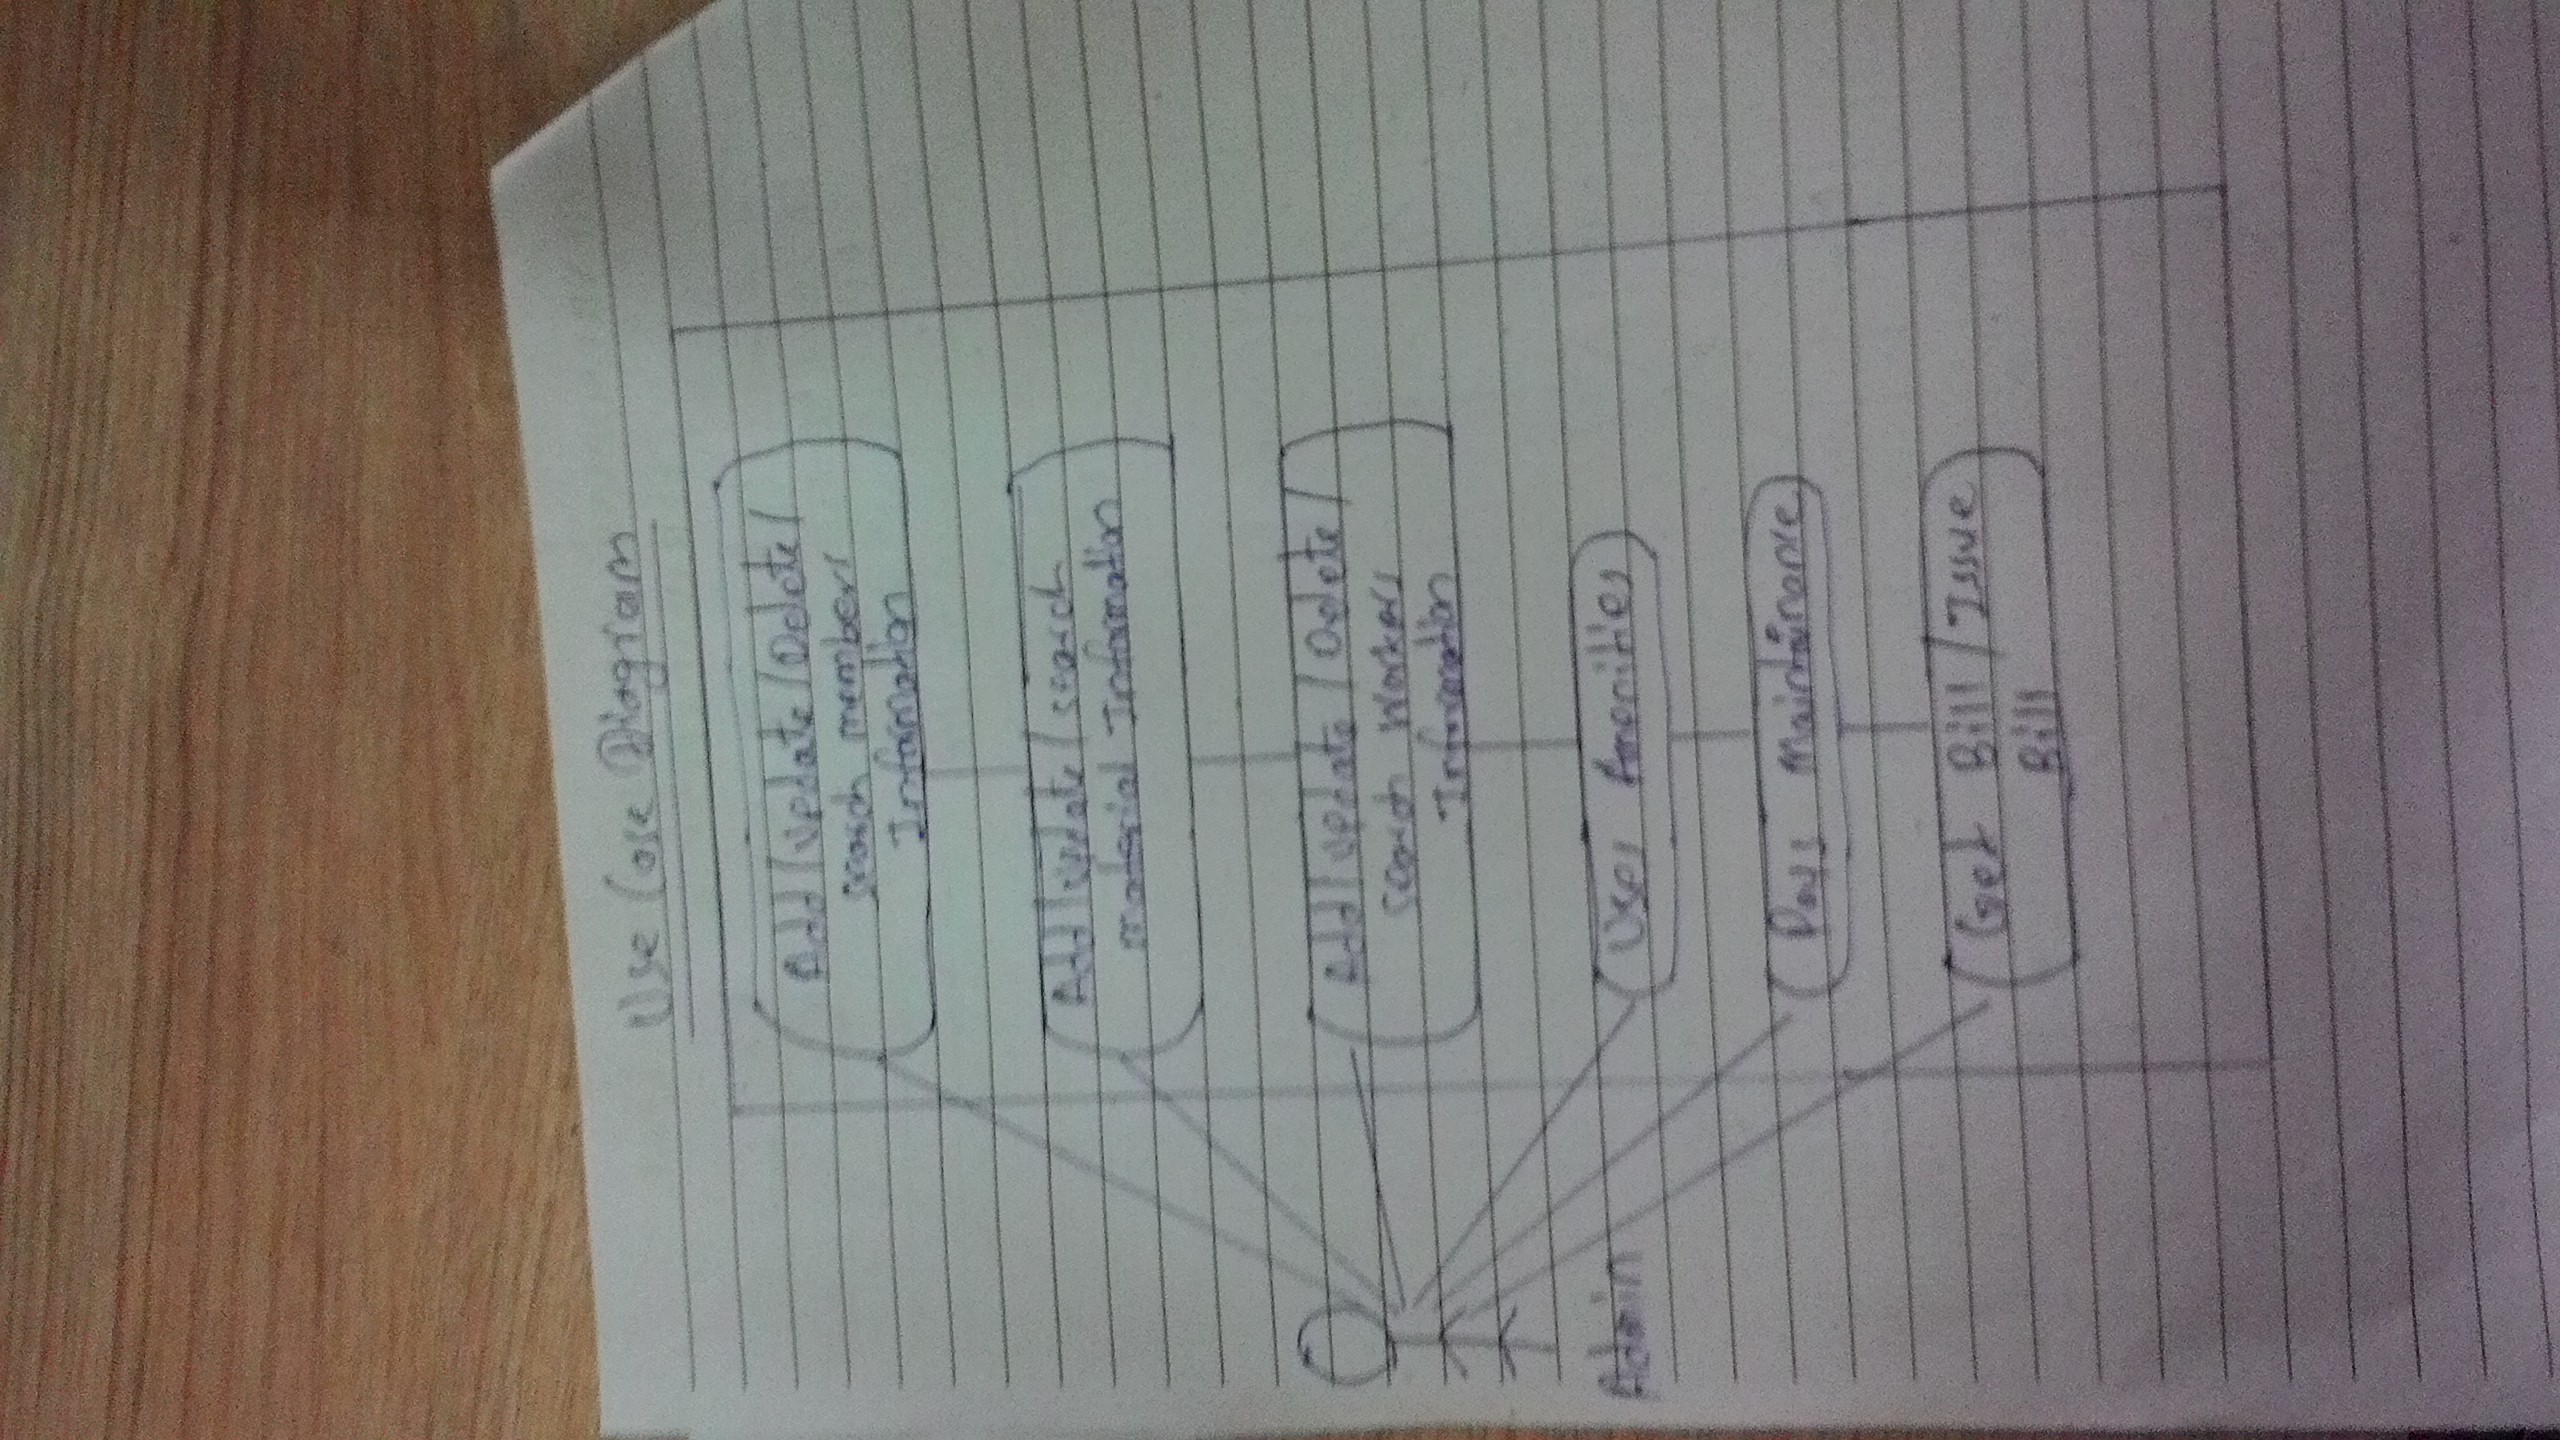 Use Case Diagram
Add/Update/Delete/
search members
Information
Add/update/search
material Information
Add/update/Delete/
search workers
Information
Admin
Uses Amenities
Pays Maintainance
Get Bill/Issue
Bill